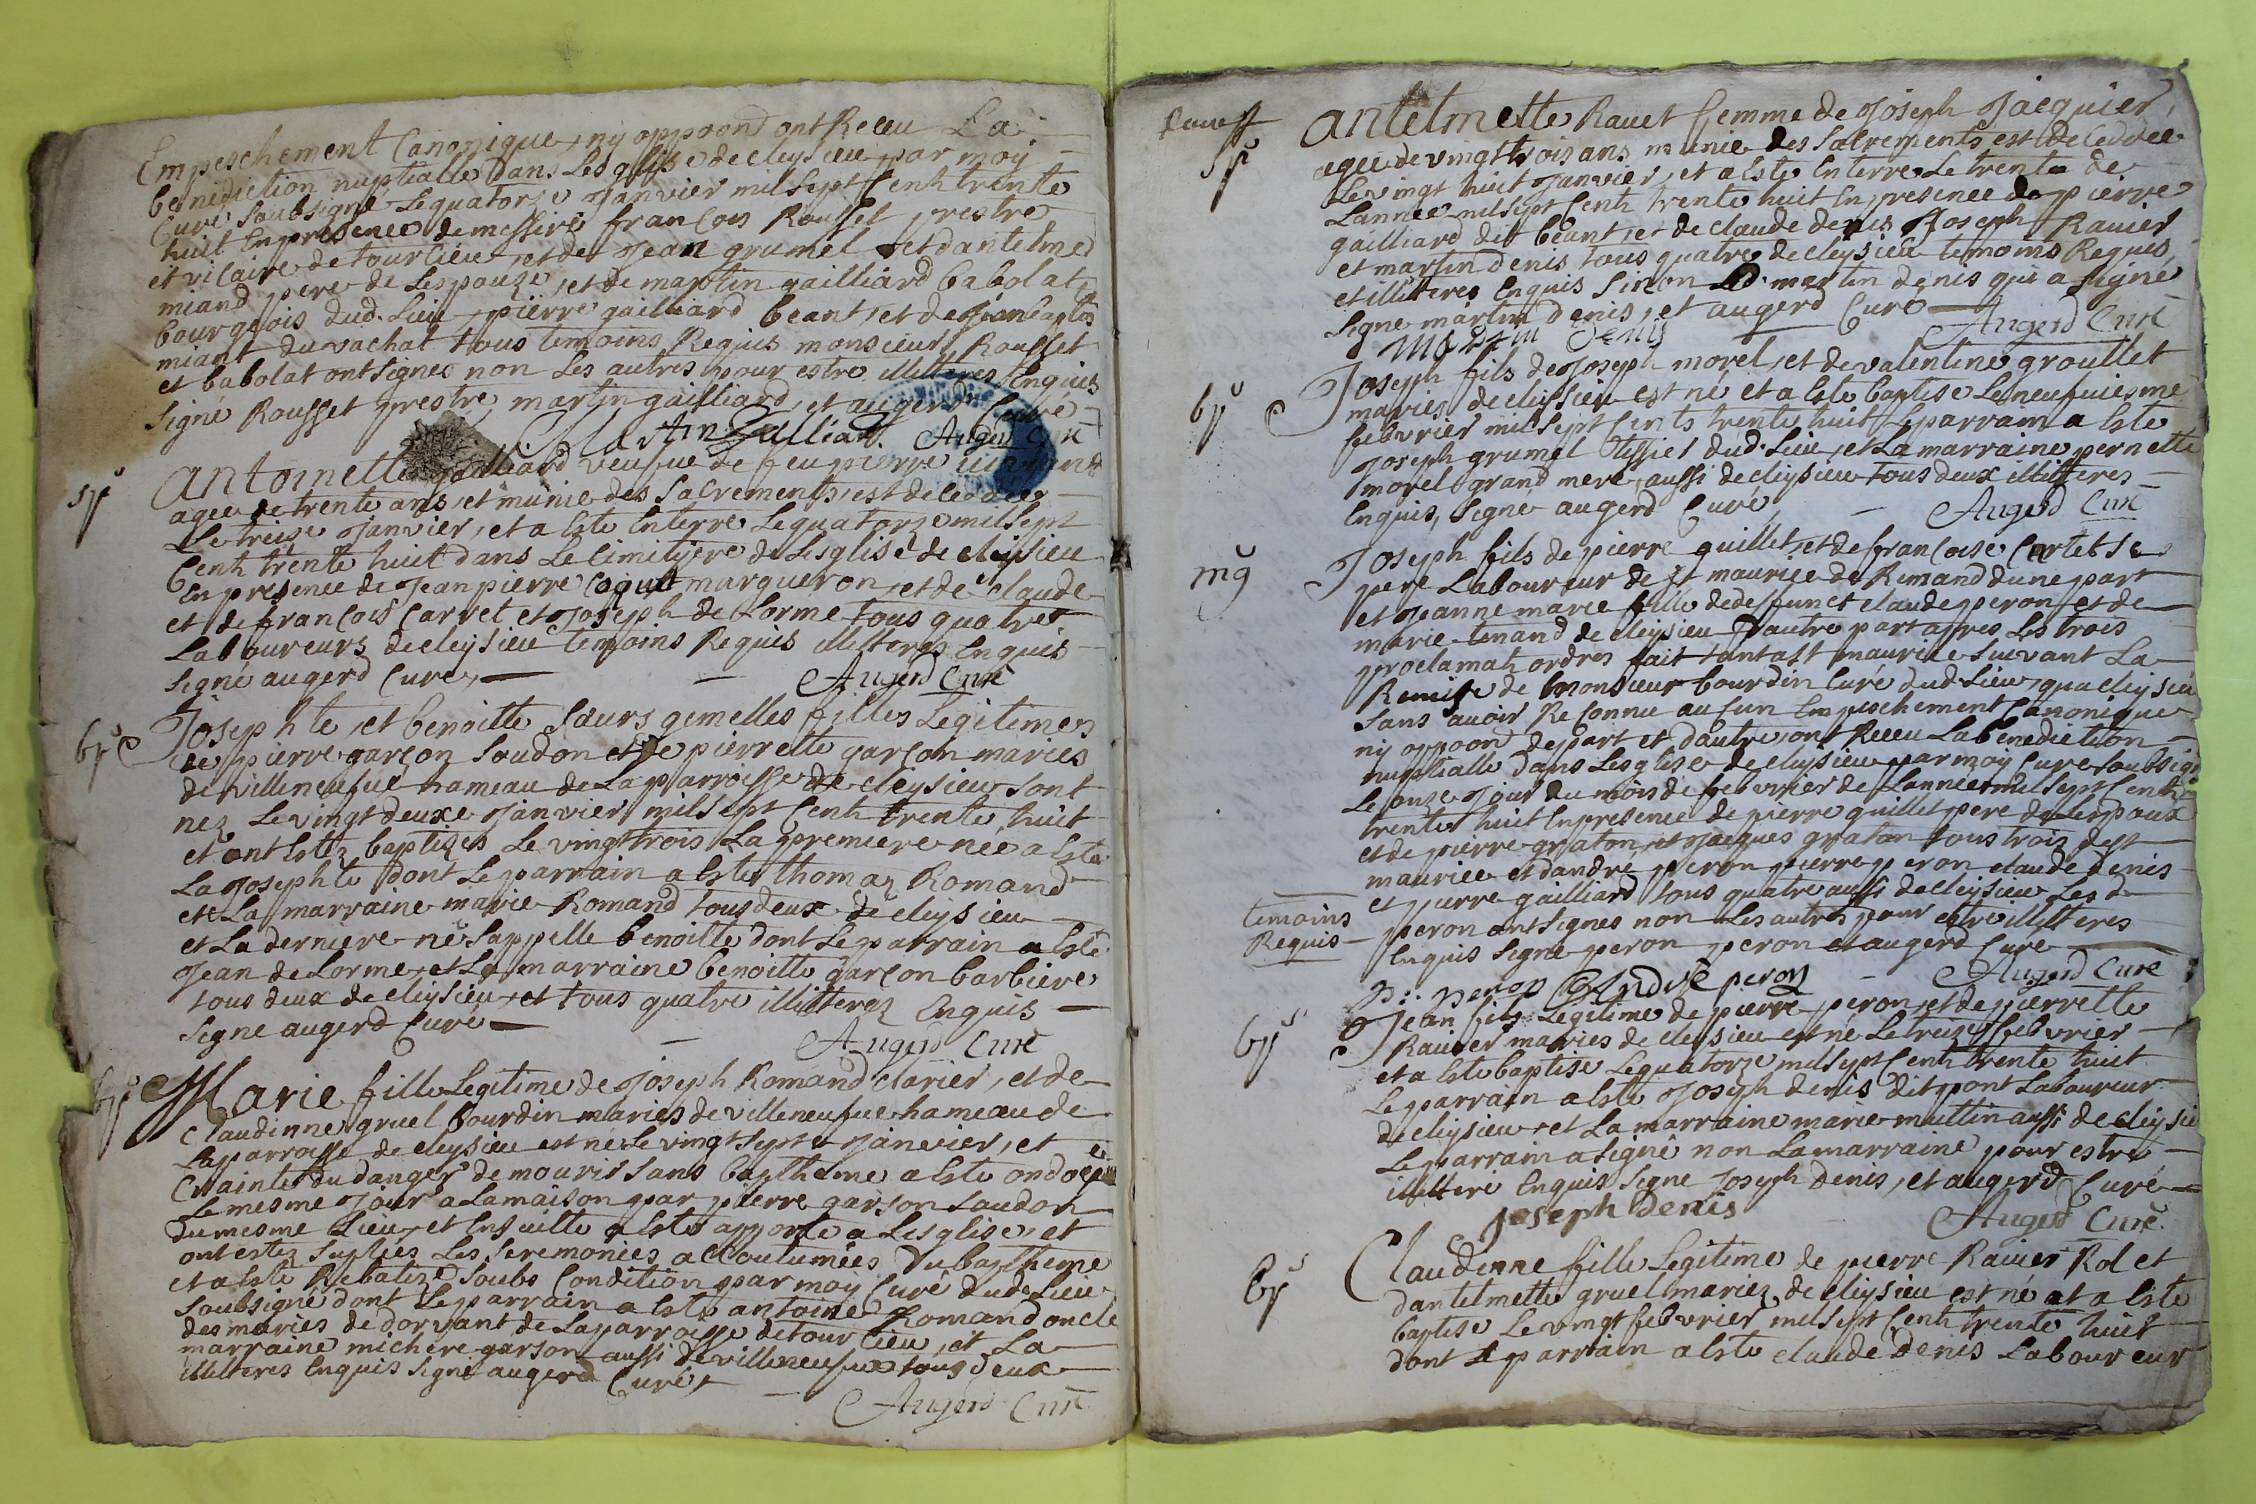 Empeschement Canonique, ny oppoon ont Receu La
benediction nuptialle dans Lesglise de cleysieu par moy
Curé soubsigné Le quatorze Janvier mil sept Cent trente
huit En presence de messire françois Rousset prestre
et vicaire de tourlieu, et de Jean grumel et dantelme
miand pere de Lespouze, et de martin gailliard babolat,
bourgeois dud. Lieu, pierre gailliard beant, et de
miant du vachat tous temoins Requis monsieur Rousset
et babolat ont signés non Les autres pour estre illitteres Enquis
signé Rousset prestre, martin gailliard, et augerd Curé
Martin Gailliard. Augerd Curé
sp̃
antoinette gailliard veufve de feu pierre
agee de trente ans, et munie des sacrements, est decedée
Le treise Janvier, et a Esté Enterré Le quatorze mil sept
Cent trente huit dans Le cimitiere de Lesglise de cleysieu
En presence de Jean pierre Coquet marqueron, et de claude
et de françois Carret et Joseph de Lorme tous quatres
Laboureurs de cleysieu temoins Requis illitteres Enquis
signé augerd Curé,
Augerd Curé
bp̃
Josephte et benoitte sœurs gemelles filles Legitimes
de pierre garçon saudon et de pierrette garçon mariés
de villeneufve hameau de La parroisse de cleysieu sont
nez Le vingt deuxe Janvier mil sept Cent trente huit
et ont Estez baptizés Le vingt trois La premiere née a Esté
La Josephte dont Le parrain a Esté thomaz Romand
et La marraine marie Romand tous deux de cleysieu
et La derniere né sappelle benoitte dont Le parrain a Esté
Jean de Lorme, et La marraine benoitte garçon barbiere
tous deux de cleysieu, et tous quatre illitterez Enquis
signé augerd Curé
Augerd Curé
bp̃
Marie fille Legitime de Joseph Romand clarier, et de
Claudinne gruel bourdin mariés de villeneufve hameau de
Laparroisse de cleysieu est né Le vingt sept Janvier, et
Crainte du danger de mourir sans baptheme a Esté ondoyé
Le mesme Jour a La maison par pierre garson saudon
du mesme Lieu, et Ensuitte a Esté apporté a Lesglise, et
ont estez supliés Les seremonies accoutumées du baptheme
et a Esté Rebatizé soubs Condition par moy Curé dud Lieu
soubsigné dont Le parrain a Esté antoine Romand oncle
des mariés de dorvant de La parroisse de tourlieu, et La
marraine michere garson aussi de villeneufve tous deux
illitteres Enquis signé augerd Curé,
Augerd Curé
sp̃
antelmette Ravet femme de Joseph Jacquier,
agee de vingt trois ans munie des sacrements est decedée
Le vingt huit Janvier, et a Esté Enterré Le trente de
Lannee mil sept Cent trente huit En presence de pierre
gailliard dit beant, et de claude denis Joseph Ravier
et martin denis tous quatre de cleysieu temoins Requis
et illitteres Enquis sinon Led. martin denis qui a signé
signé martin denis, et augerd Curé
Augerd Curé
martin Denis
bp̃
Joseph fils de Joseph morel, et de valentine groullet
mariés de cleysieu est né et a Esté baptisé Le neufuiesme
febvrier mil sept Cents trente huit Le parrain a Esté
Joseph grumel tissier dud. Lieu, et La marraine pernette
morel grand mere, aussi de cleysieu tous deux illitteres
Enquis, signé augerd Curé,
Augerd Curé
mg
Joseph fils de pierre guillet, et de françoise Cortet se
pere Laboureur de st maurice de Remand dune part
et Jeanne marie fille de deffunct claude peron, et de
marie tenand de cleysieu dautre part apres Les trois
proclamats ordres fait tant a st maurice suivant La
Remise de monsieur bourdin Curé dud. Lieu, qua cleysieu
sans avoir Reconnu aucun Empeschement Canonique
ny oppoon de part et dautre, ont Receu La benediction
nuptialle dans Lesglise de cleysieu par moy Curé soubsigné
Le onze Jour du mois de febvrier de Lannée mil sept Cent
trente huit En presence de pierre guillet pere de Lespoux
et de pierre graton, et Jacques graton tous trois de st
maurice et dandre peron pierre peron claude denis
et pierre gailliard tous quatre aussi de cleysieu Les d
temoins
Requis
peron ont signés non Les autres pour estre illitteres
Enquis signé peron peron et augerd Curé
Augerd Curé
pi: peron André peron
bp̃
Jean fils Legitime de pierre peron, et de pierrette
Ravier mariés de cleysieu est né Le treize febvrier
et a Esté baptisé Le quatorze mil sept Cent trente huit
Le parrain a Esté Joseph denis dit pont Laboureur
de cleysieu, et La marraine marie mullin aussi de cleysieu
Le parrain a signé non La marraine pour estre
illittere Enquis signé Joseph denis, et augerd Curé
Joseph Denis
Augerd Curé
bp̃
Claudinne fille Legitime de pierre Ravier Rol et
dantelmette gruel mariez de cleysieu est né et a Esté
baptisé Le vingt febvrier mil sept Cent trente huit
dont Le parrain a Esté claude denis Laboureur